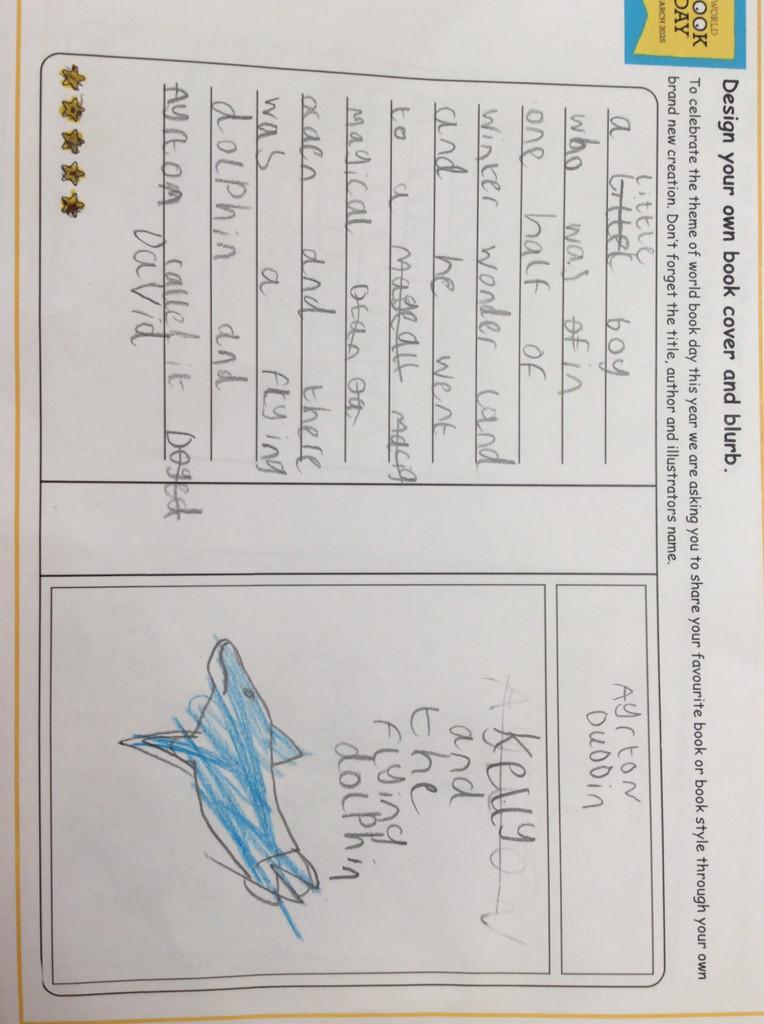 WORLD
BOOK
DAY
MARCH 2025
Design your own book cover and blurb.
To celebrate the theme of world book day this year we are asking you to share your favourite book or book style through your own
brand new creation. Don't forget the title, author and illustrators name.
little
a littel boy
who was of in
one half of
winter wonder land
and he went
to a
magical
and there
was a flying
dolphin and
Ayrton called it
David
Ayrton
Dubbin
Kelly
and
the
flying
dolphin